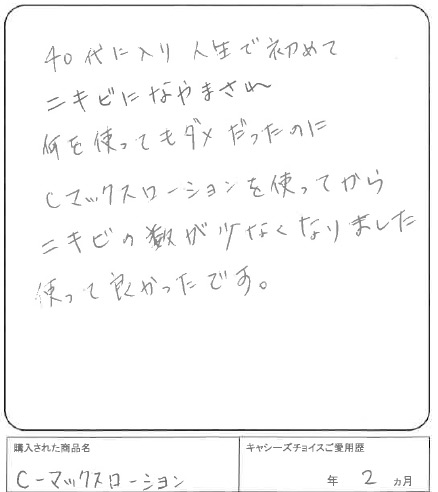 40代に入り人生で初めて
ニキビになやまされ
何を使ってもダメだったのに
Cマックスローションを使ってから
ニキビの数が少なくなりました
使って良かったです。
購入された商品名
C-マックスローション
キャシーズチョイスご愛用歴
年 2 ヵ月